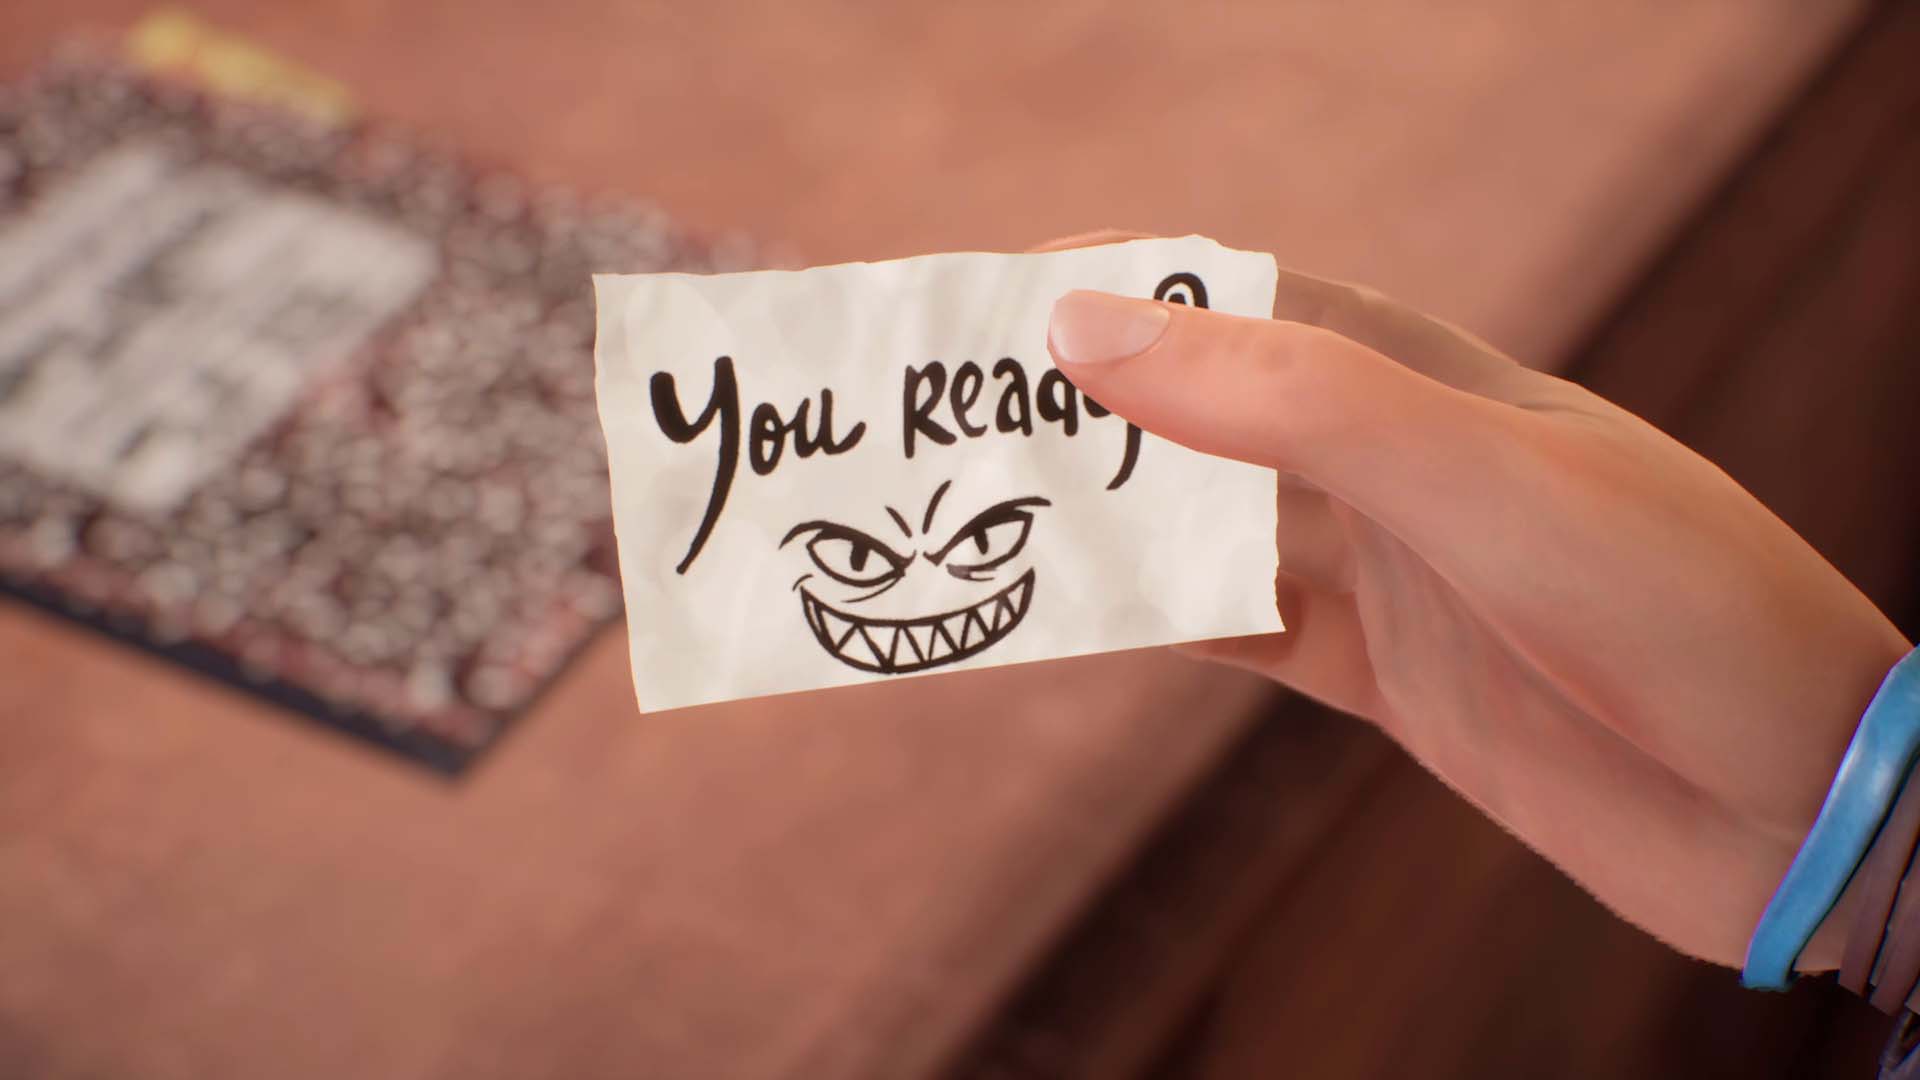 You Ready?